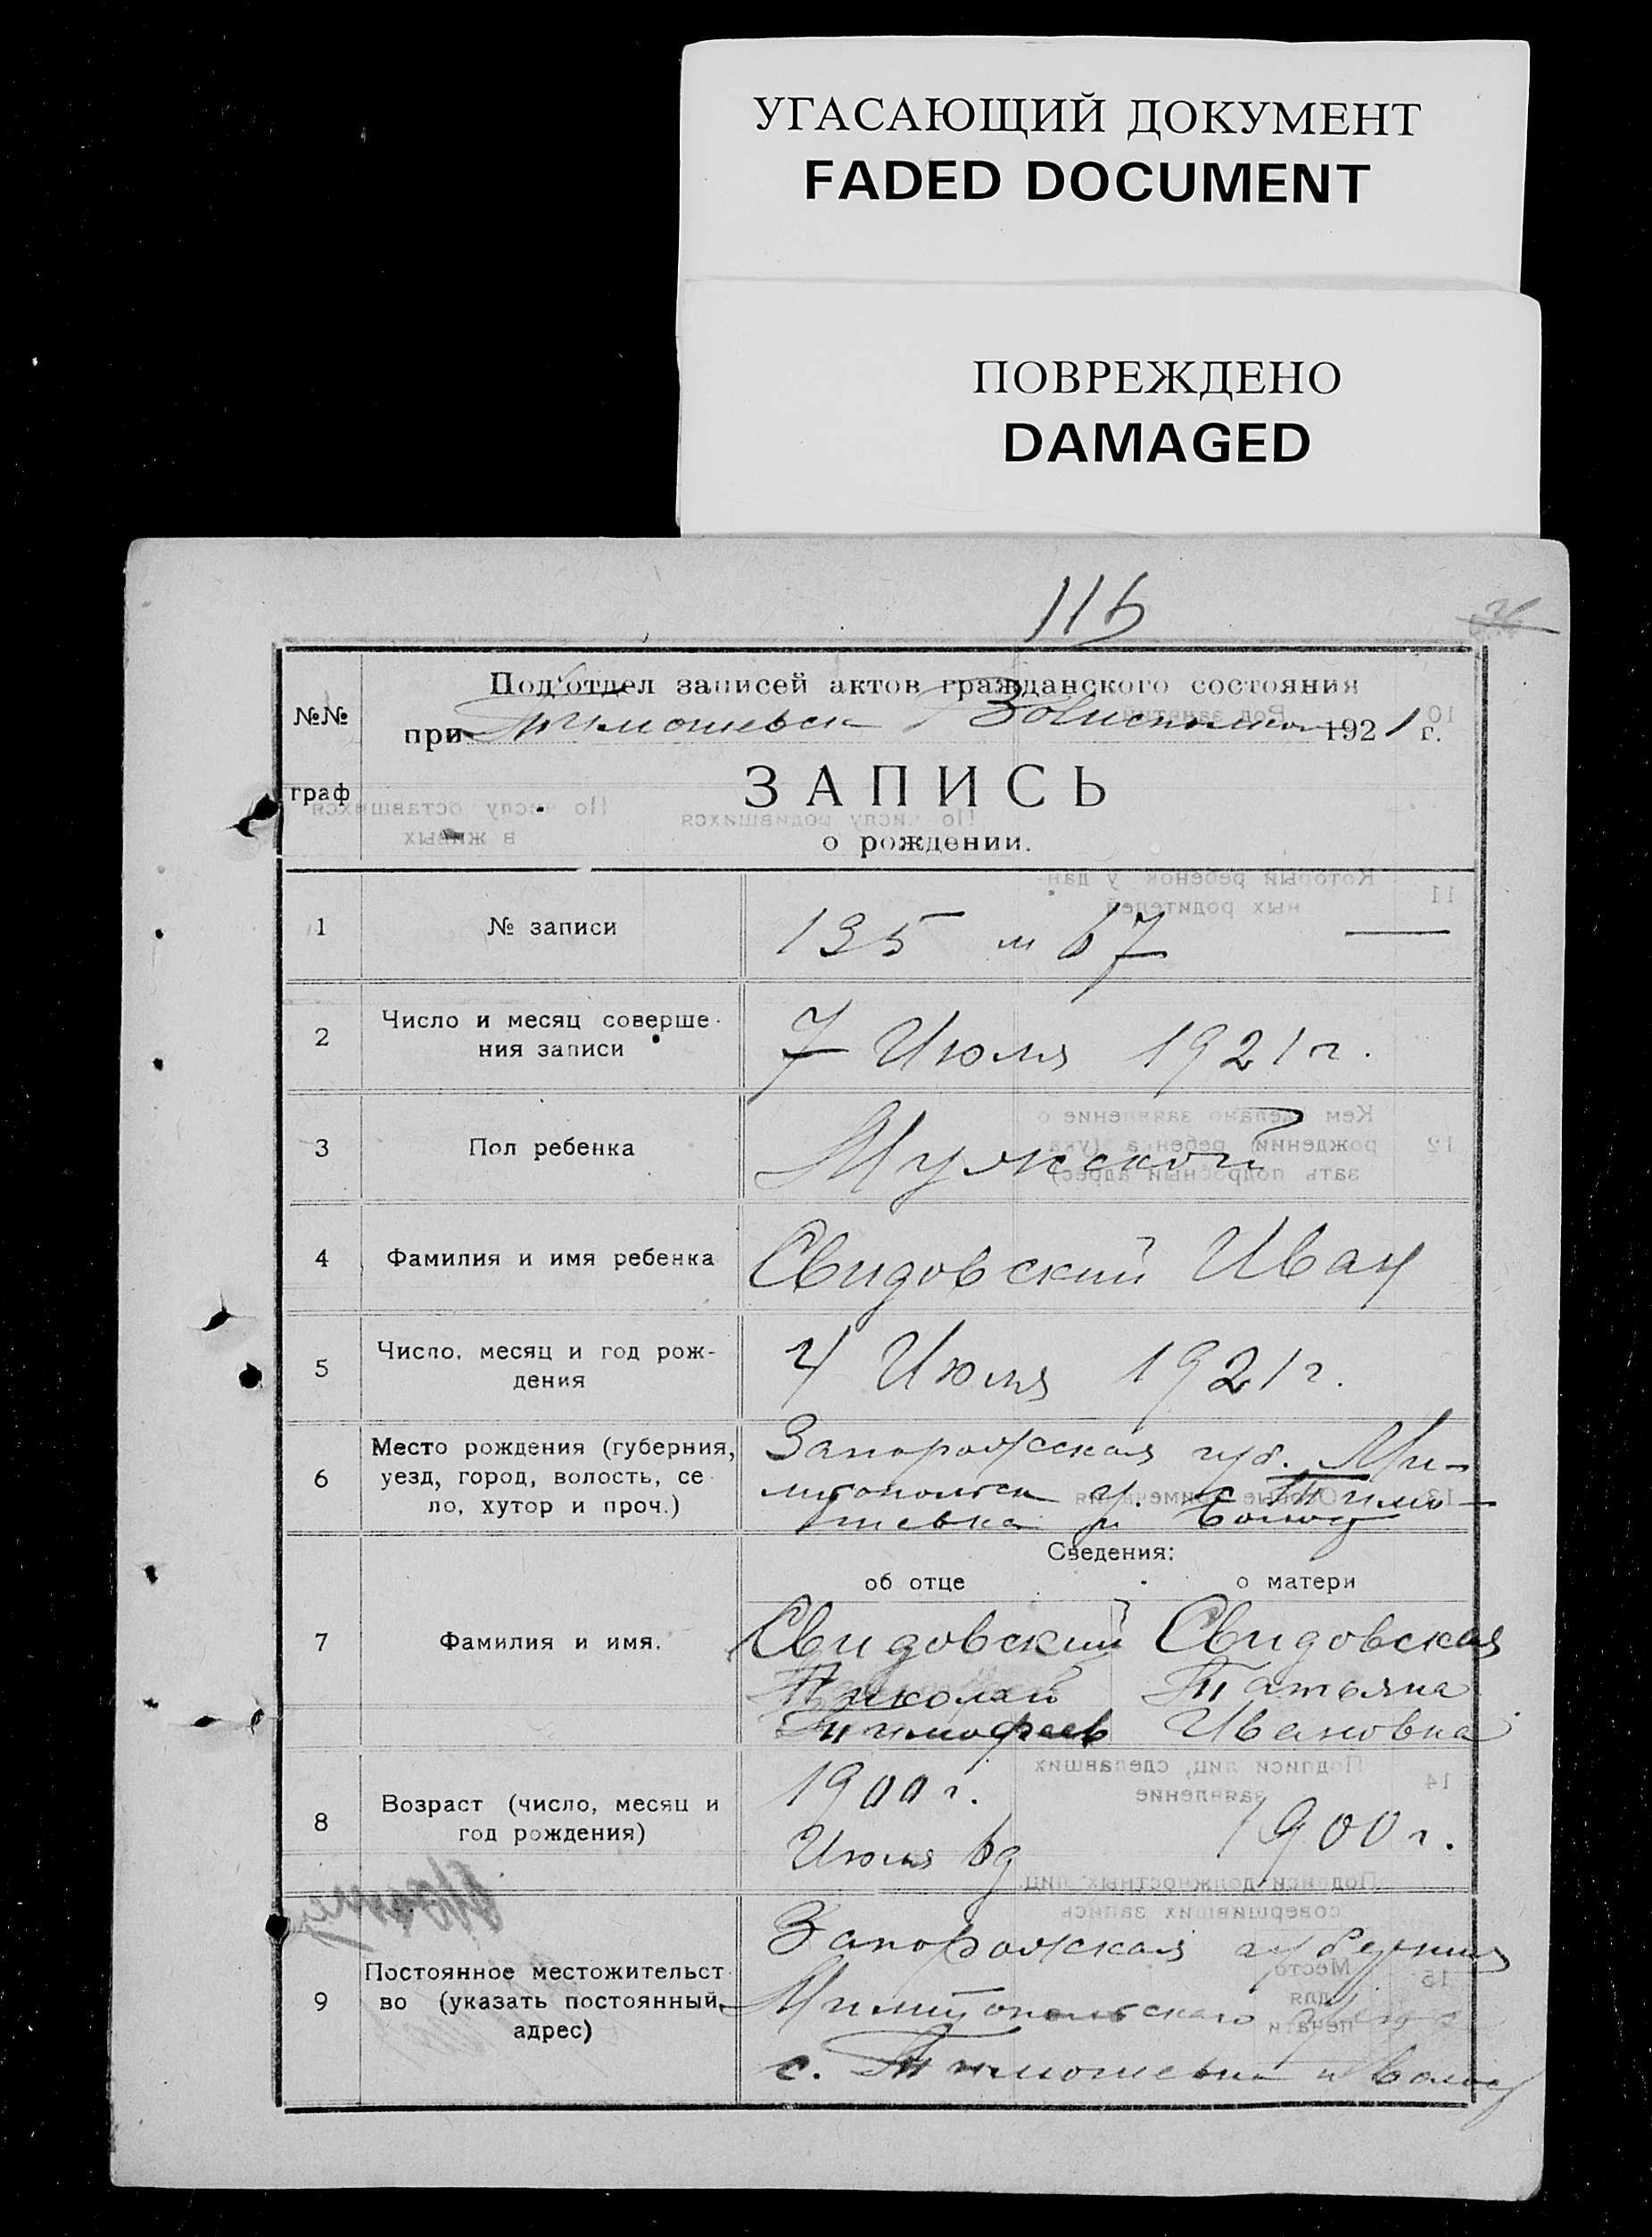 УГАСАЮЩИЙ ДОКУМЕНТ
FADED DOCUMENT
ПОВРЕЖДЕНО
DAMAGED
116
№№
граф
Под'отдел записей актов гражданского состояния
при 1921 г.
ЗАПИСЬ
о рождении.
1 № записи 135 м 67
2 Число и месяц соверше-
ния записи 7 Июля 1921 г.
3 Пол ребенка Мужской
4 Фамилия и имя ребенка Свидовский Иван
5 Число, месяц и год рож-
дения 4 Июля 1921 г.
6 Место рождения (губерния,
уезд, город, волость, се-
ло, хутор и проч.)
Запорожская губ. Ми-
у. с. Тимо-
шевка и волос
Сведения:
об отце о матери
7 Фамилия и имя.
Свидовский Свидовская
Николай Татьяна
Тимофеев Ивановна
8 Возраст (число, месяц и
год рождения)
1900 г. 1900 г.
Июля
9 Постоянное местожительст-
во (указать постоянный
адрес)
Запорожская губерния
Милитопольскаго
с. Тимошевка и волос